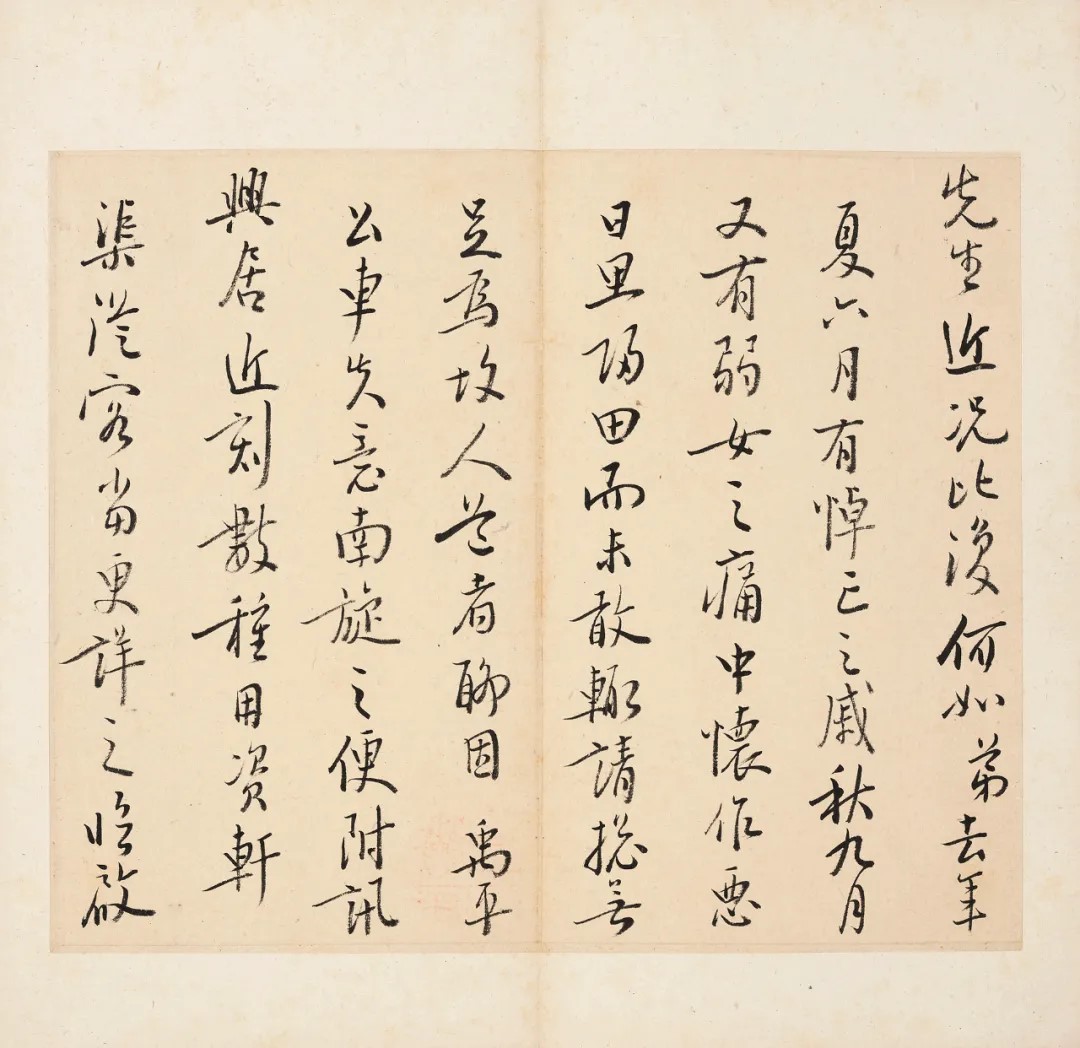 先生近况比復何如弟去年
夏六月有悼亡之戚秋九月
又有弱女之痛中懷作惡
日甚歸田而未敢輒請揔無
足爲故人道者聊因 禹平
公車失意南旋之便附訊
興居近刻數種用資軒
渠澄客當更詳之臨啟